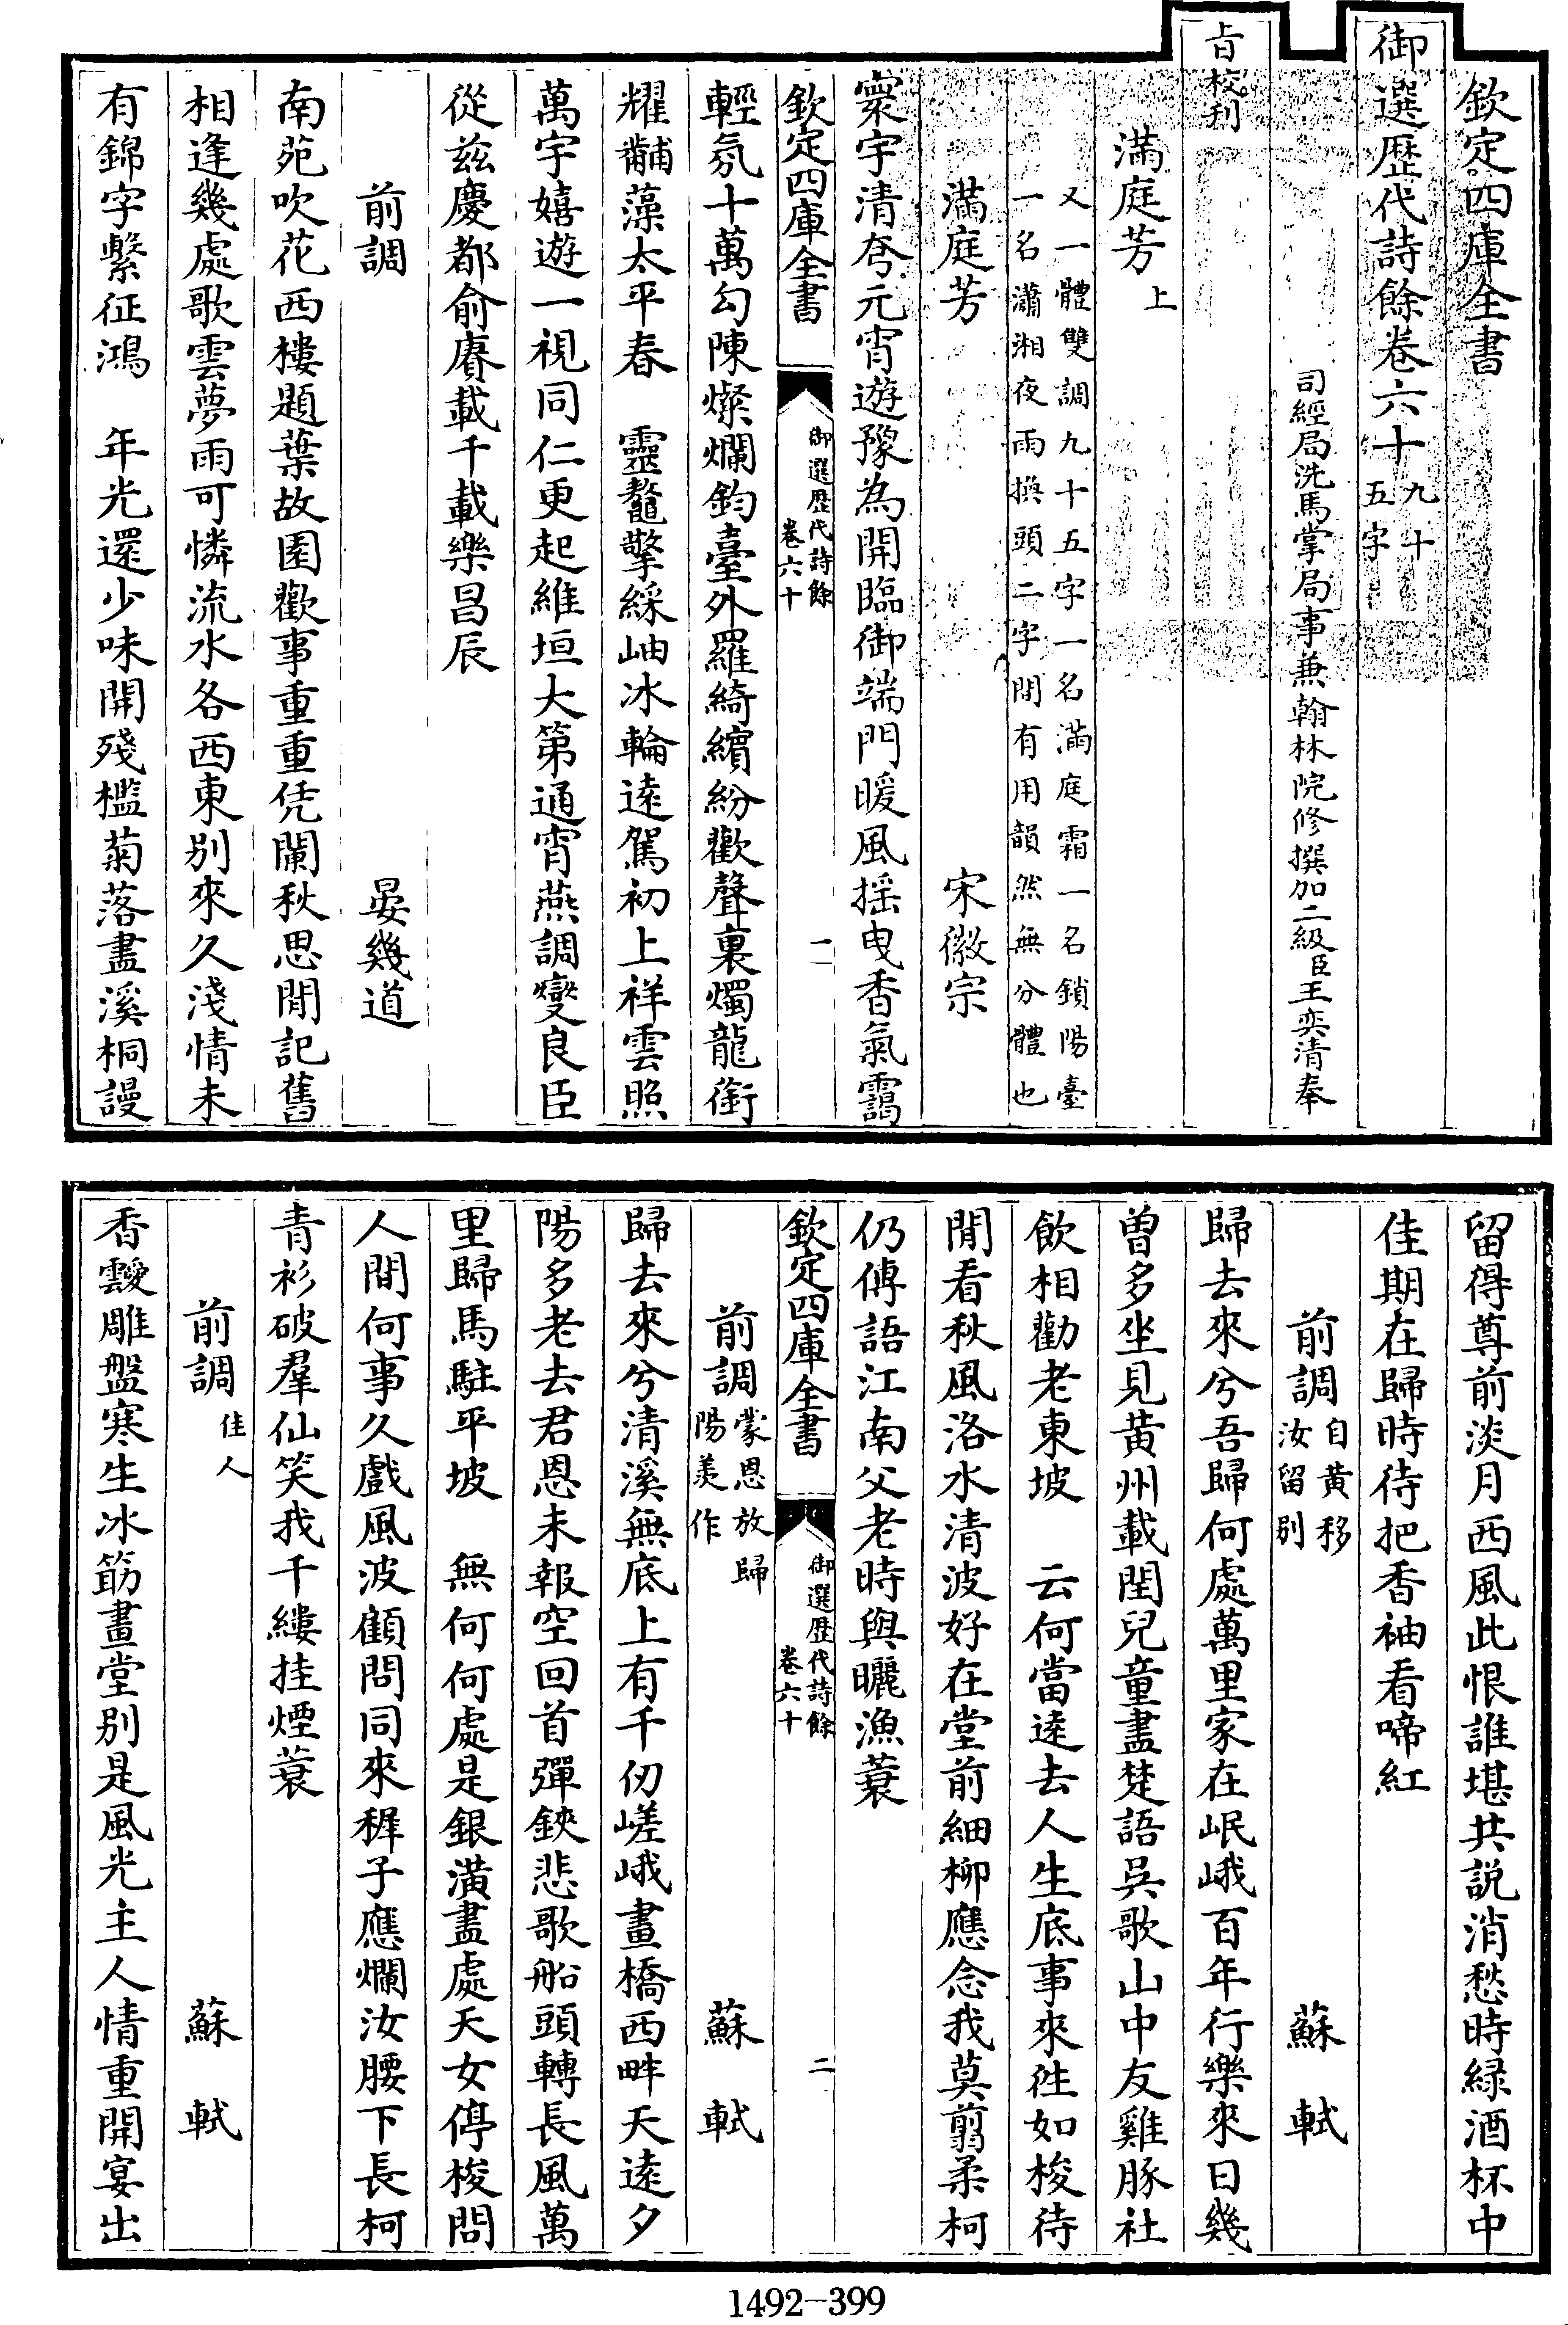 欽定四庫全書
御選歷代詩餘卷六十九十五字
司經局洗馬掌局事兼翰林院修撰加二級臣王奕清奉
旨校刊
滿庭芳上
又一體雙調九十五字一名滿庭霜一名鎖陽臺
一名瀟湘夜雨換頭二字間有用韻然無分體也
滿庭芳 宋徽宗
寰宇清夸元宵遊豫為開臨御端門暖風揺曳香氣靄
輕氛十萬勾陳燦爛鈞臺外羅綺繽紛歡聲裏燭龍銜
耀黼藻太平春 靈鼇擎綵岫冰輪逺駕初上祥雲照
萬宇嬉遊一視同仁更起維垣大第通宵燕調變良臣
從兹慶都俞賡載千載樂昌辰
前調 晏幾道
南苑吹花西樓題葉故園歡事重重凭闌秋思閒記舊
相逢幾處歌雲夢雨可憐流水各西東别來久淺情未
有錦字繫征鴻 年光還少味開殘檻菊落盡溪桐謾
欽定四庫全書 御選歷代詩餘 卷六十 一
留得尊前淡月西風此恨誰堪共説消愁時緑酒杯中
佳期在歸時待把香袖看啼紅
前調自黃移汝留别 蘇軾
歸去來兮吾歸何處萬里家在岷峨百年行樂來日幾
曾多坐見黄州載閏兒童盡楚語吳歌山中友雞豚社
飲相勸老東坡 云何當逺去人生底事來徃如梭待
閒看秋風洛水清波好在堂前細柳應念我莫翦柔柯
仍傳語江南父老時與曬漁蓑
欽定四庫全書 御選歷代詩餘 卷六十 二
前調蒙恩放歸陽羡作 蘇軾
歸去來兮清溪無底上有千仞嵯峨畫橋西畔天逺夕
陽多老去君恩未報空回首彈鋏悲歌船頭轉長風萬
里歸馬駐平坡 無何何處是銀潢盡處天女停梭問
人間何事久戲風波顧問同來穉子應爛汝腰下長柯
青衫破羣仙笑我千縷挂煙蓑
前調佳人 蘇軾
香靉雕盤寒生冰筯畫堂别是風光主人情重開宴出
1492-399